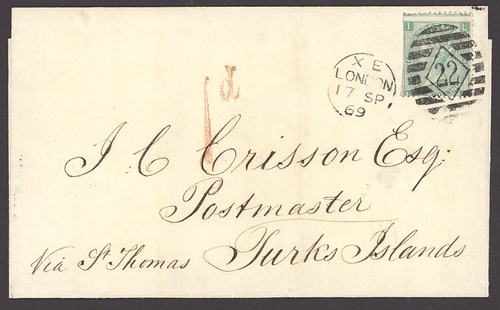 XE
LONDON
17 SP
69
22
1d
J C Crisson Esq:
Postmaster
Turks Islands
Via St Thomas